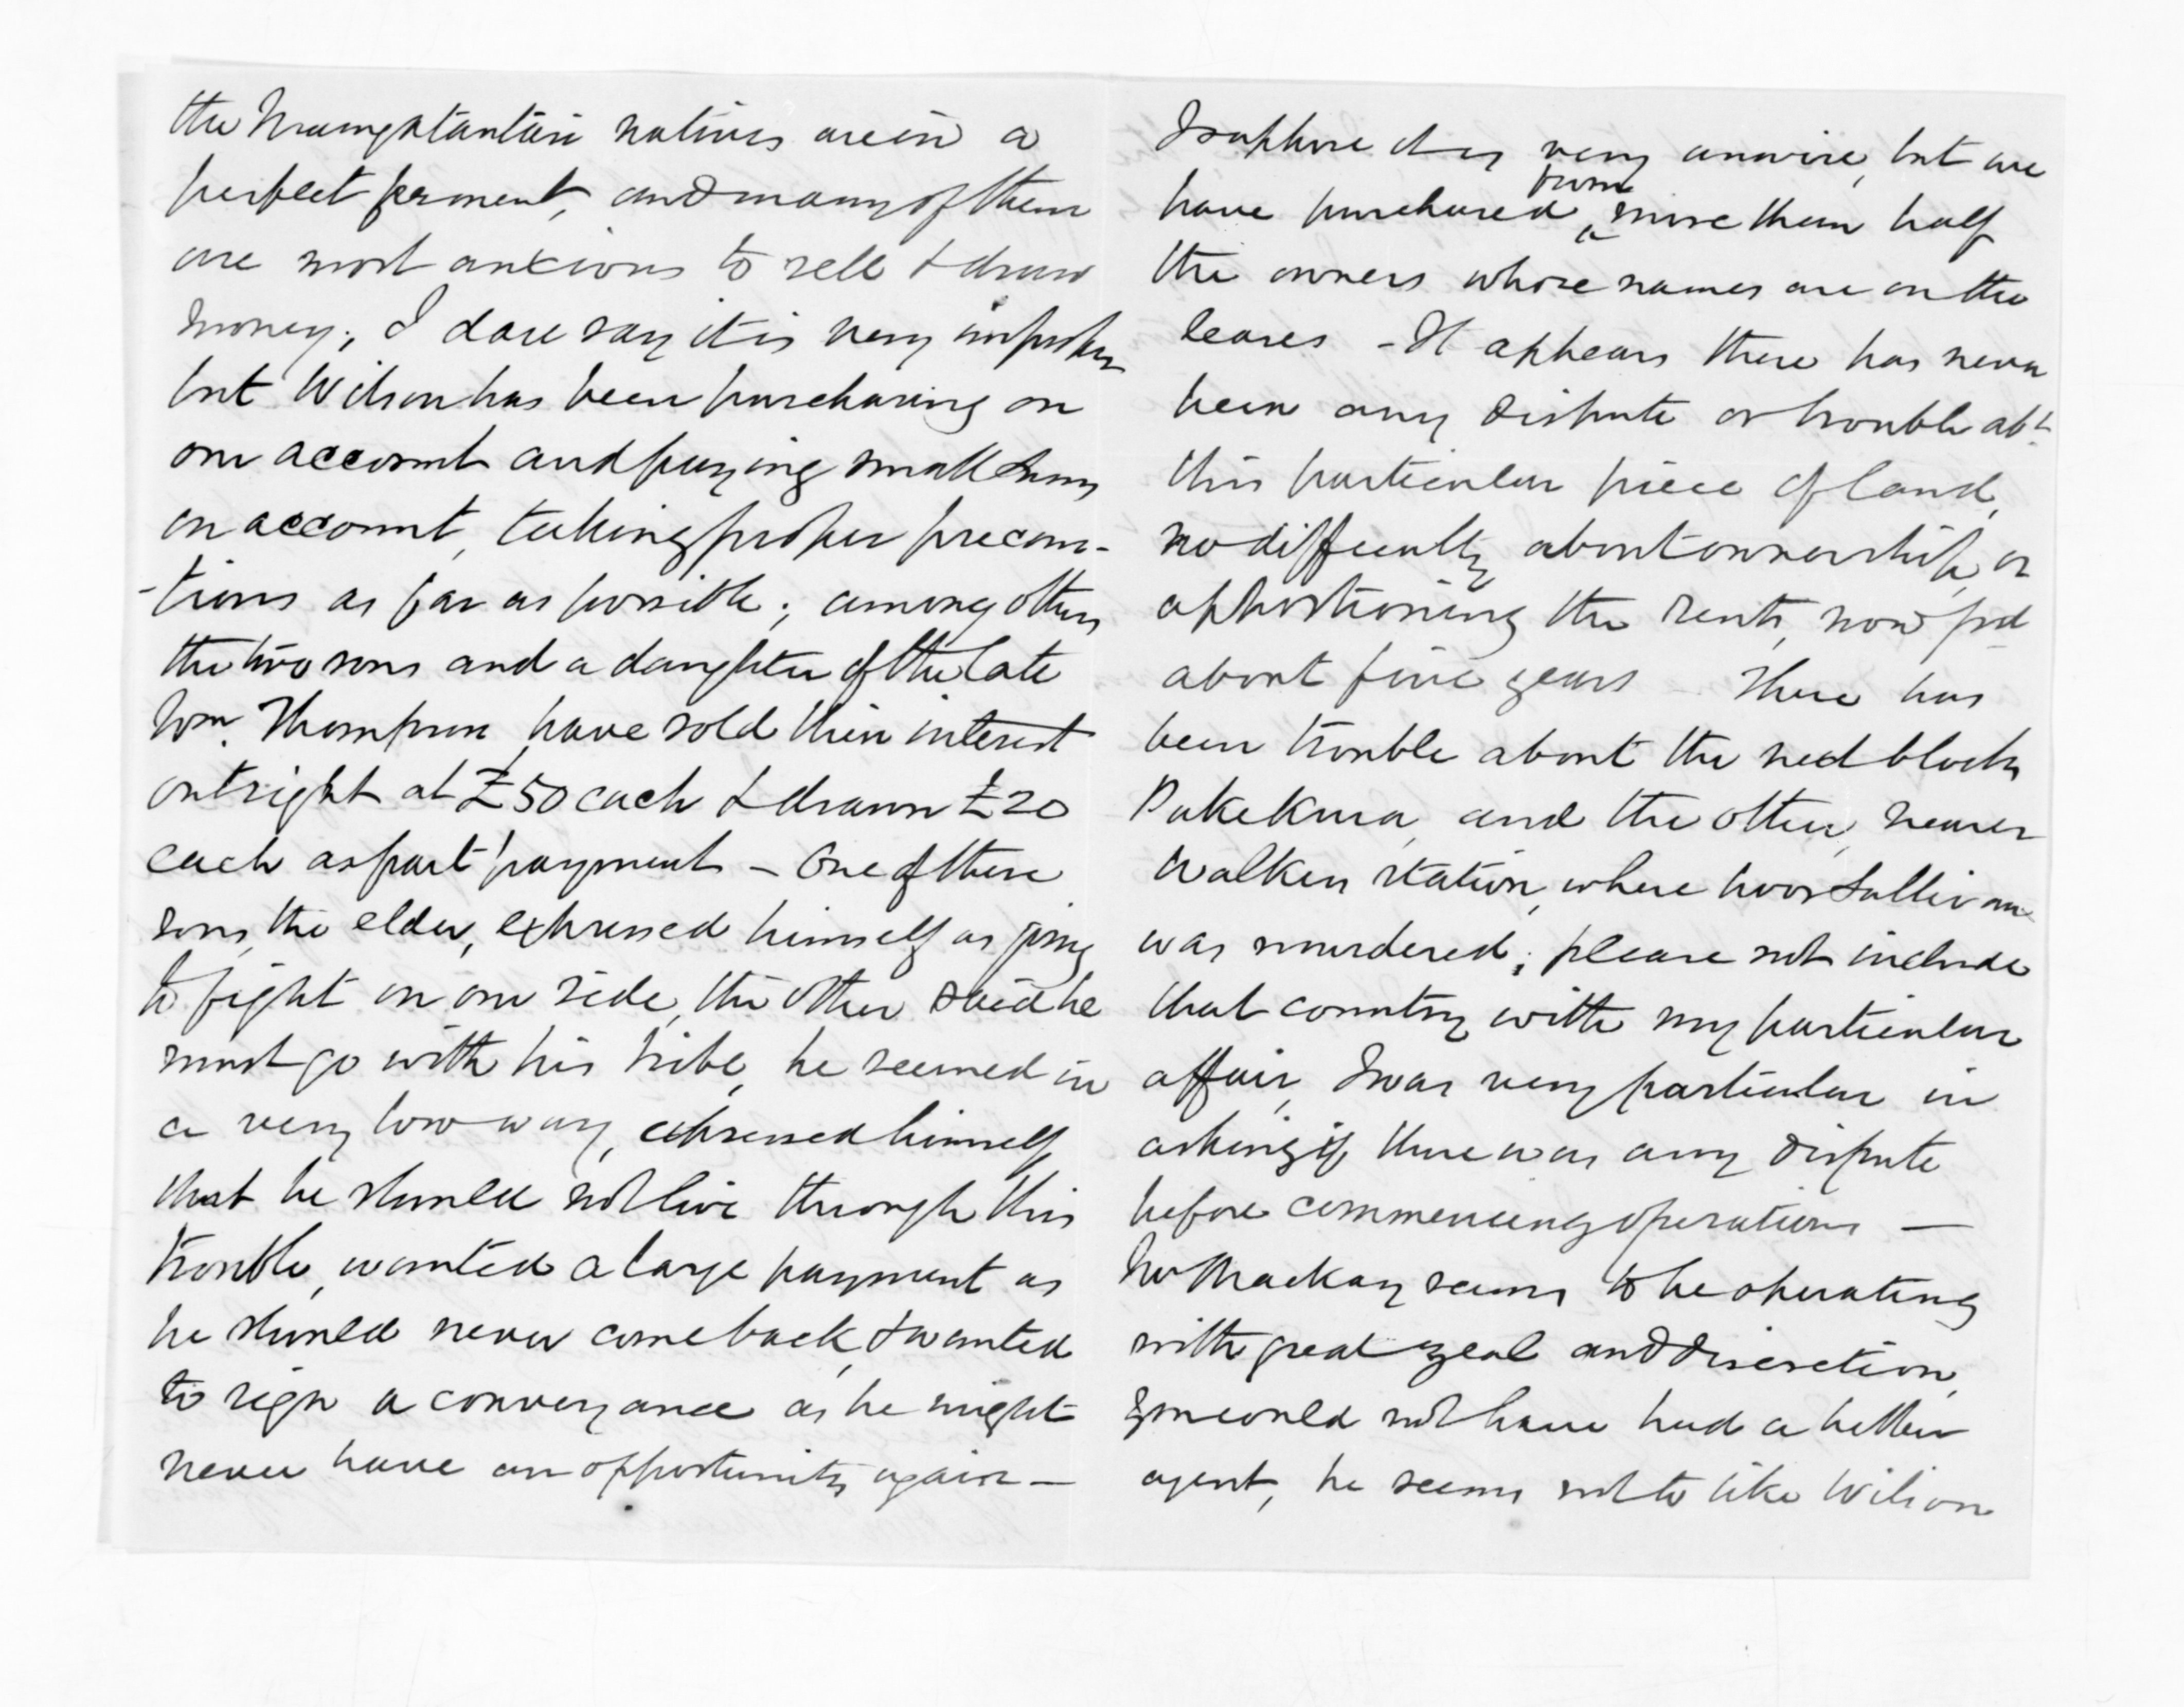 the Maungatautari natives are in a
perfect ferment, and many of them
are most anxious to sell & draw
money; I dare say it is very improper
but Wilson has been purchasing on
our account and paying small sums
on account, taking proper precau-
-tions as far as possible; among others
the two sons and a daughter of the late
Wm. Thompson have sold their interest
outright at £50 each & drawn £20
each as part payment - One of these
sons, the elder, expressed himself as going
to fight on our side, the other said he
must go with his tribe, he seemed in
a very low way, expressed himself
that he should not live through this
trouble, wanted a large payment as
he should never come back, & wanted
to sign a conveyance as he might
never have an opportunity again -
I suppose it is very unwise, but we
have purchased from more than half
the owners whose names are on the
leases - It appears there has never
been any dispute or trouble abt
this particular piece of land,
no difficulty about ownership, or
apportioning the rents, now pd
about five years - There has
been trouble about the next blocks
Pukekura, and the other, nearer
Walkers station, where poor Sullivan
was murdered; please not include
that country with my particular
affair, I was very particular in
asking if there was any dispute
before commencing operations -
Mr Mackay seems to be operating
with great zeal and discretion,
you could not have had a better
agent, he seems not to like Wilson